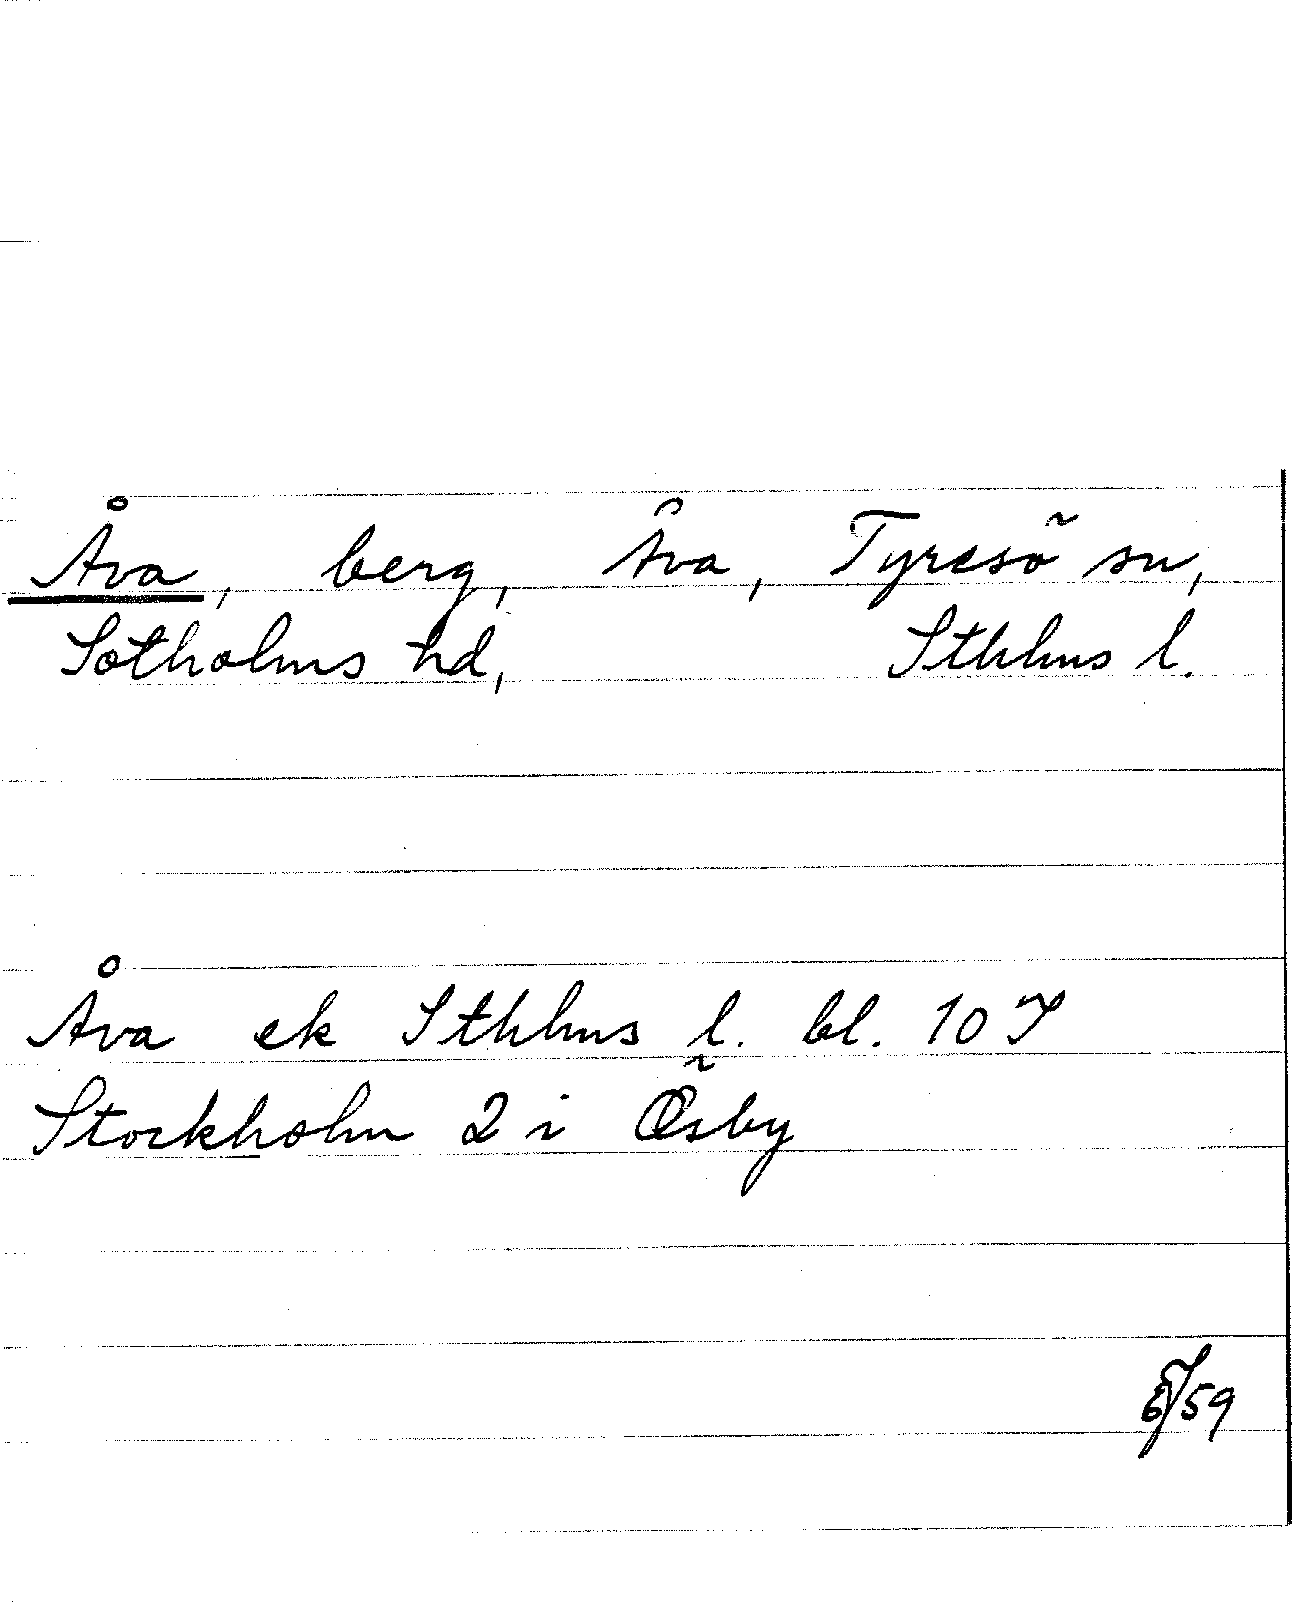 Åva, berg, Åva, Tyresö sn,
Sotholms hd, Sthlms l.
Åva ek Sthlms l. bl. 10 J
Stockholm 2 i Ösby
/59